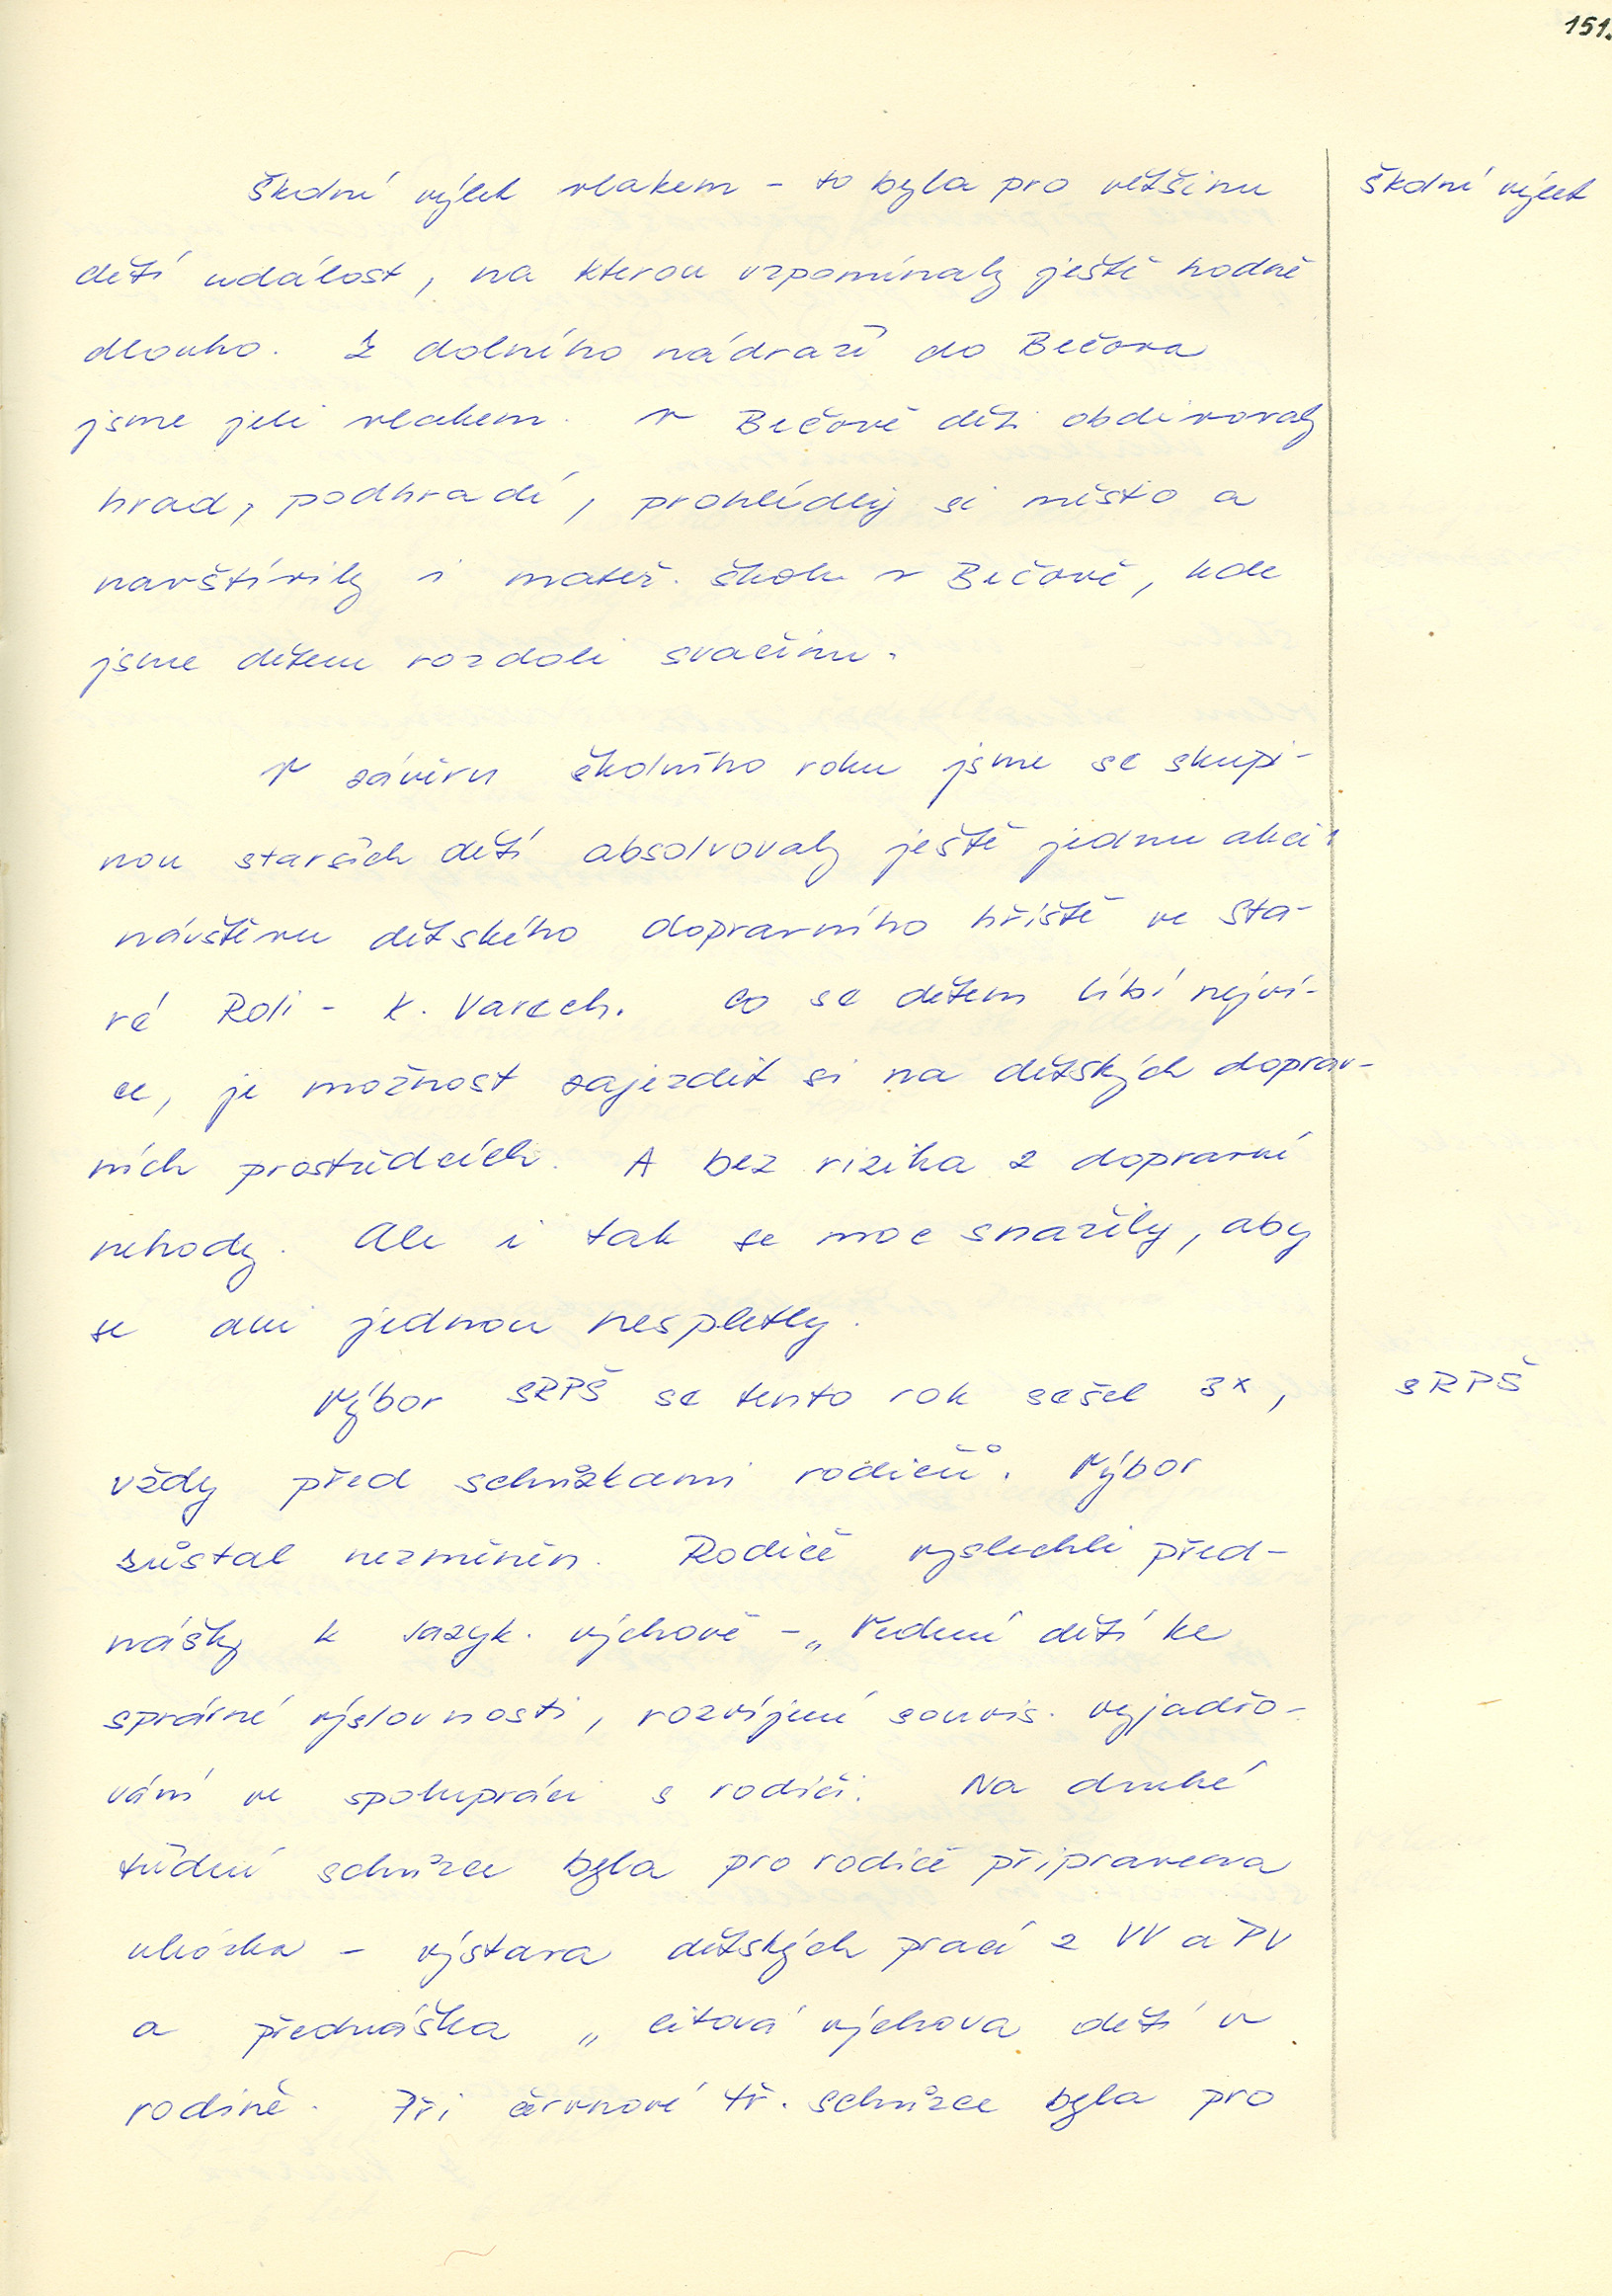 151.
Školní výlet vlakem - to byla pro většinu
školní výlet
dětí událost, na kterou vzpomínaly ještě hodně
dlouho. Z dolního nádraží do Bečova
jsme jeli vlakem. V Bečově děti obdivovaly
hrad, podhradí, prohlédly si město a
navštívily i mateř. školu v Bečově, kde
jsme dětem rozdali svačinu.
V závěru školního roku jsme se skupi-
nou starších dětí absolvovaly ještě jednu akci:
návštěvu dětského dopravního hřiště ve Sta-
ré Roli - K. Varech. Co se dětem líbí nejví-
ce, je možnost zajezdit si na dětských doprav-
ních prostředcích. A bez rizika z dopravní
nehody. Ale i tak se moc snažily, aby
se ani jednou nespletly.
Výbor SRPŠ se tento rok sešel 3x,
SRPŠ
vždy před schůzkami rodičů. Výbor
zůstal nezměněn. Rodiče vyslechli před-
nášky k jazyk. výchově - „Vedení dětí ke
správné výslovnosti, rozvíjení souvis. vyjadřo-
vání ve spolupráci s rodiči. Na druhé
třídní schůzce byla pro rodiče připravena
ukázka - výstava dětských prací z VV a PV
a přednáška „citová výchova dětí v
rodině. Při červnové tř. schůzce byla pro